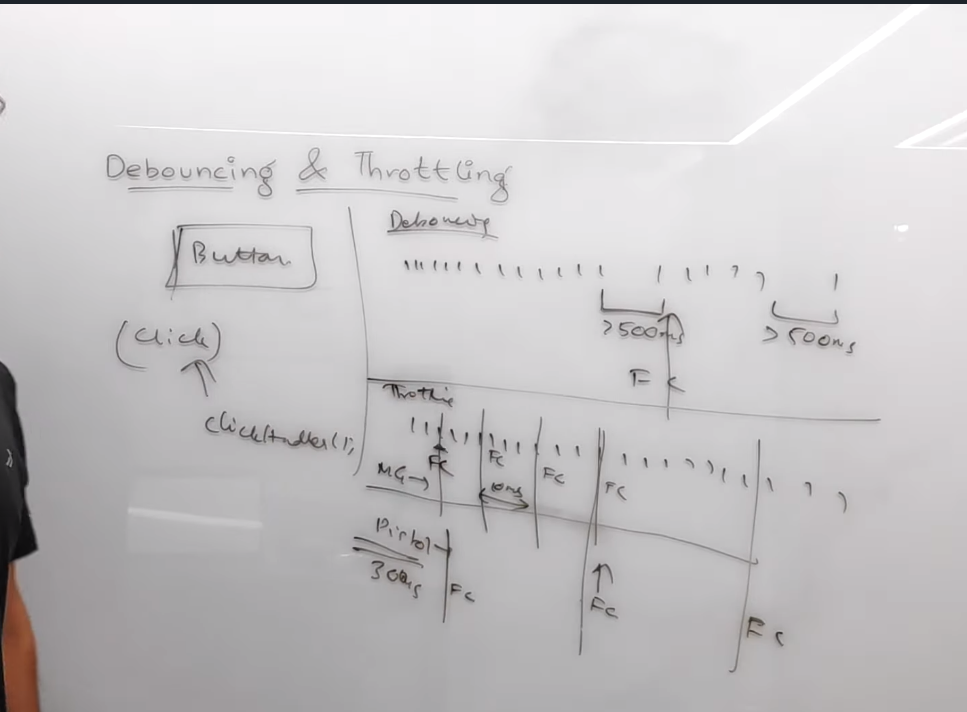 Debouncing & Throttling
Button
(Click)
clickHandler();
Debouncing
>500ms
>500ms
FC
Throttling
FC
FC
FC
FC
MG →
10ms
Pistol
300ms
FC
FC
FC